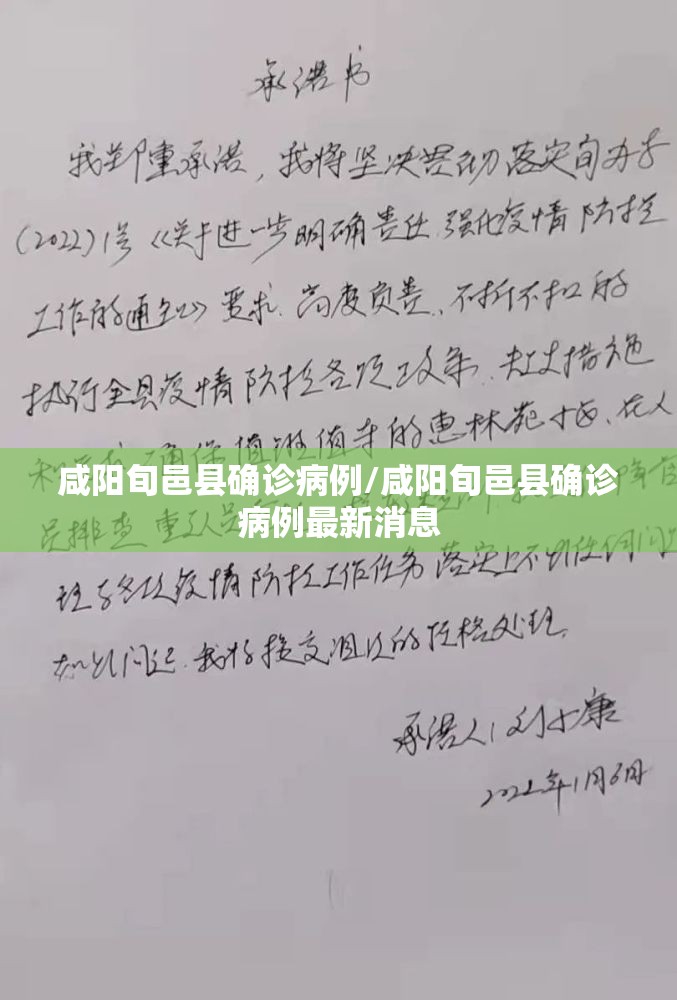 承诺书
我郑重承诺，我将坚决贯彻落实旬办字
(2022)1号《关于进一步明确责任、强化疫情防控
工作的通知》要求、高度负责、不折不扣的
执行全县疫情防控各项政策、
确保值班值守的
咸阳旬邑县确诊病例/咸阳旬邑县确诊
病例最新消息
员排查 重
疫情防控工作任务落实上不出任何问
如出问题、我将接受组织的严格处理。
承诺人：刘小康
2022年1月6日